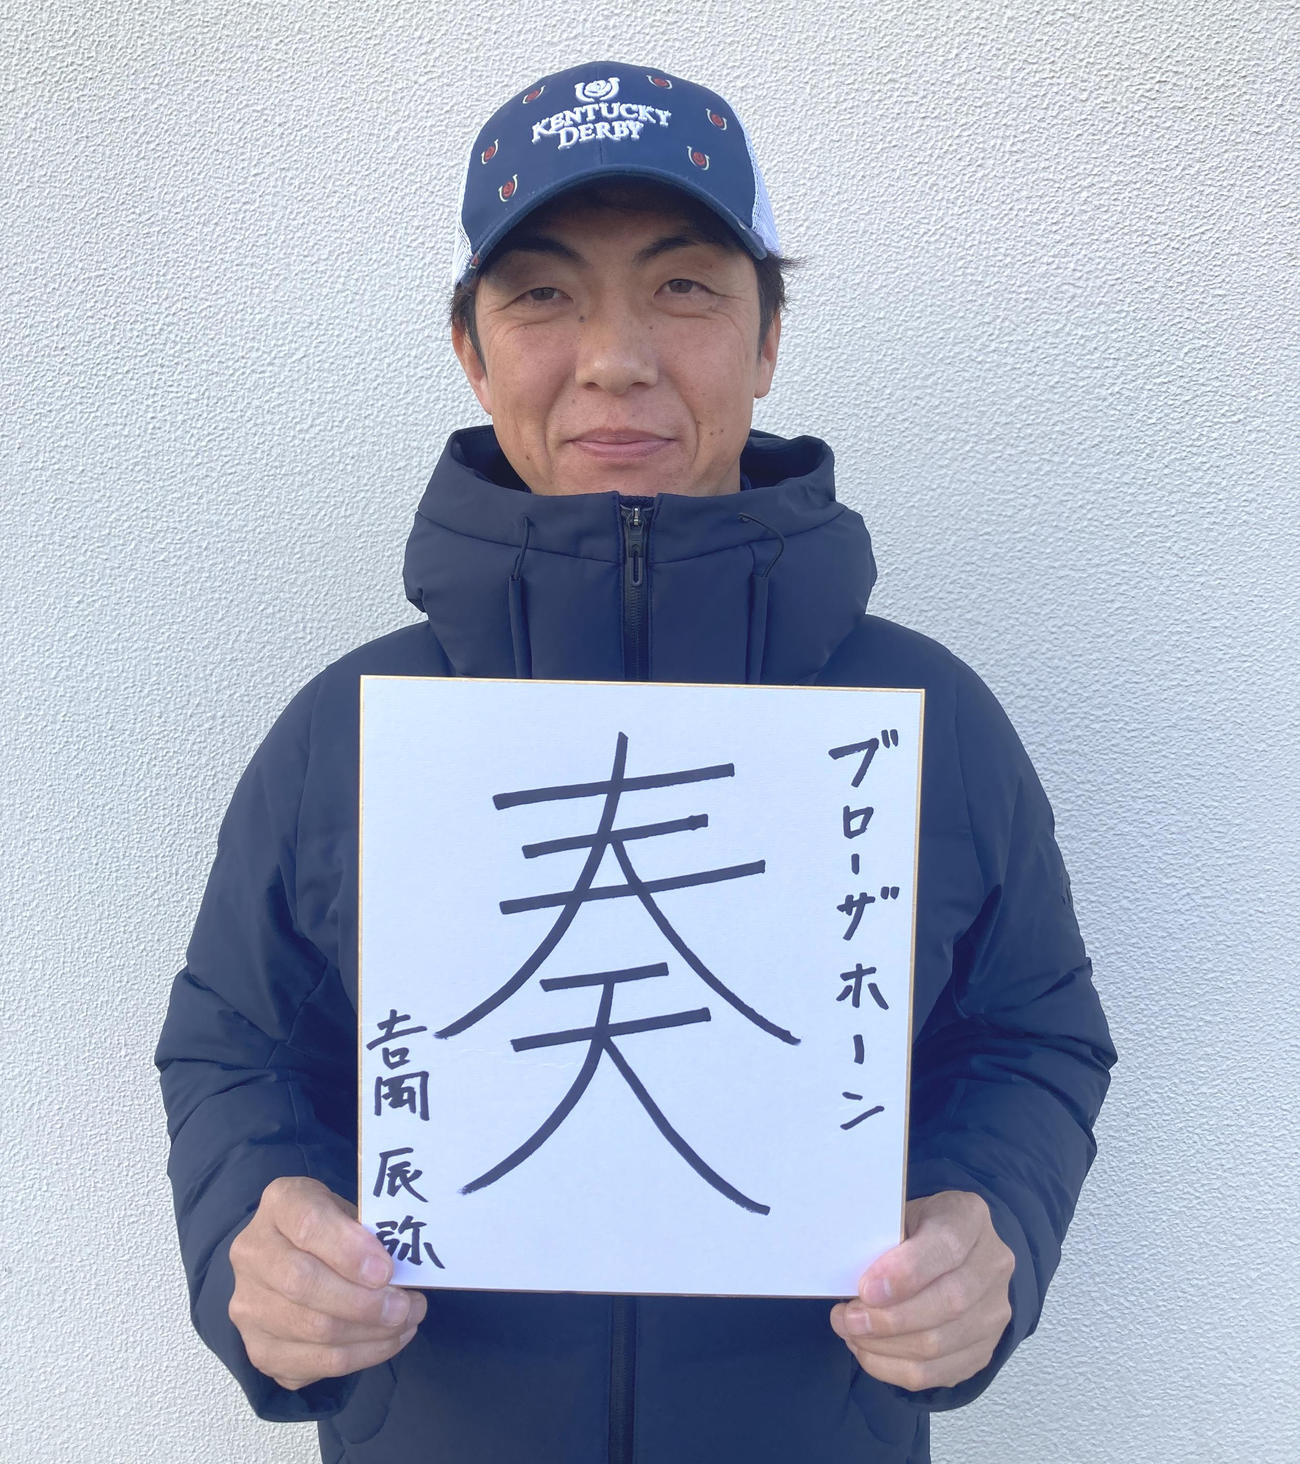 KENTUCKY
DERBY
ブローザホーン
奏
吉岡辰弥